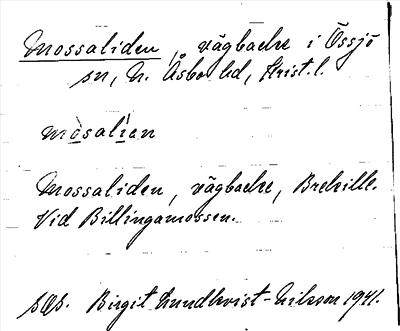 Mossaliden, vägbacke i Össjö
sn, N. Åsbo hd, Krist. l.
mòsali̍en
Mossaliden, vägbacke, Brekille.
Vid Billingamossen.
Birgit Lundkvist-Nilsson 1941.